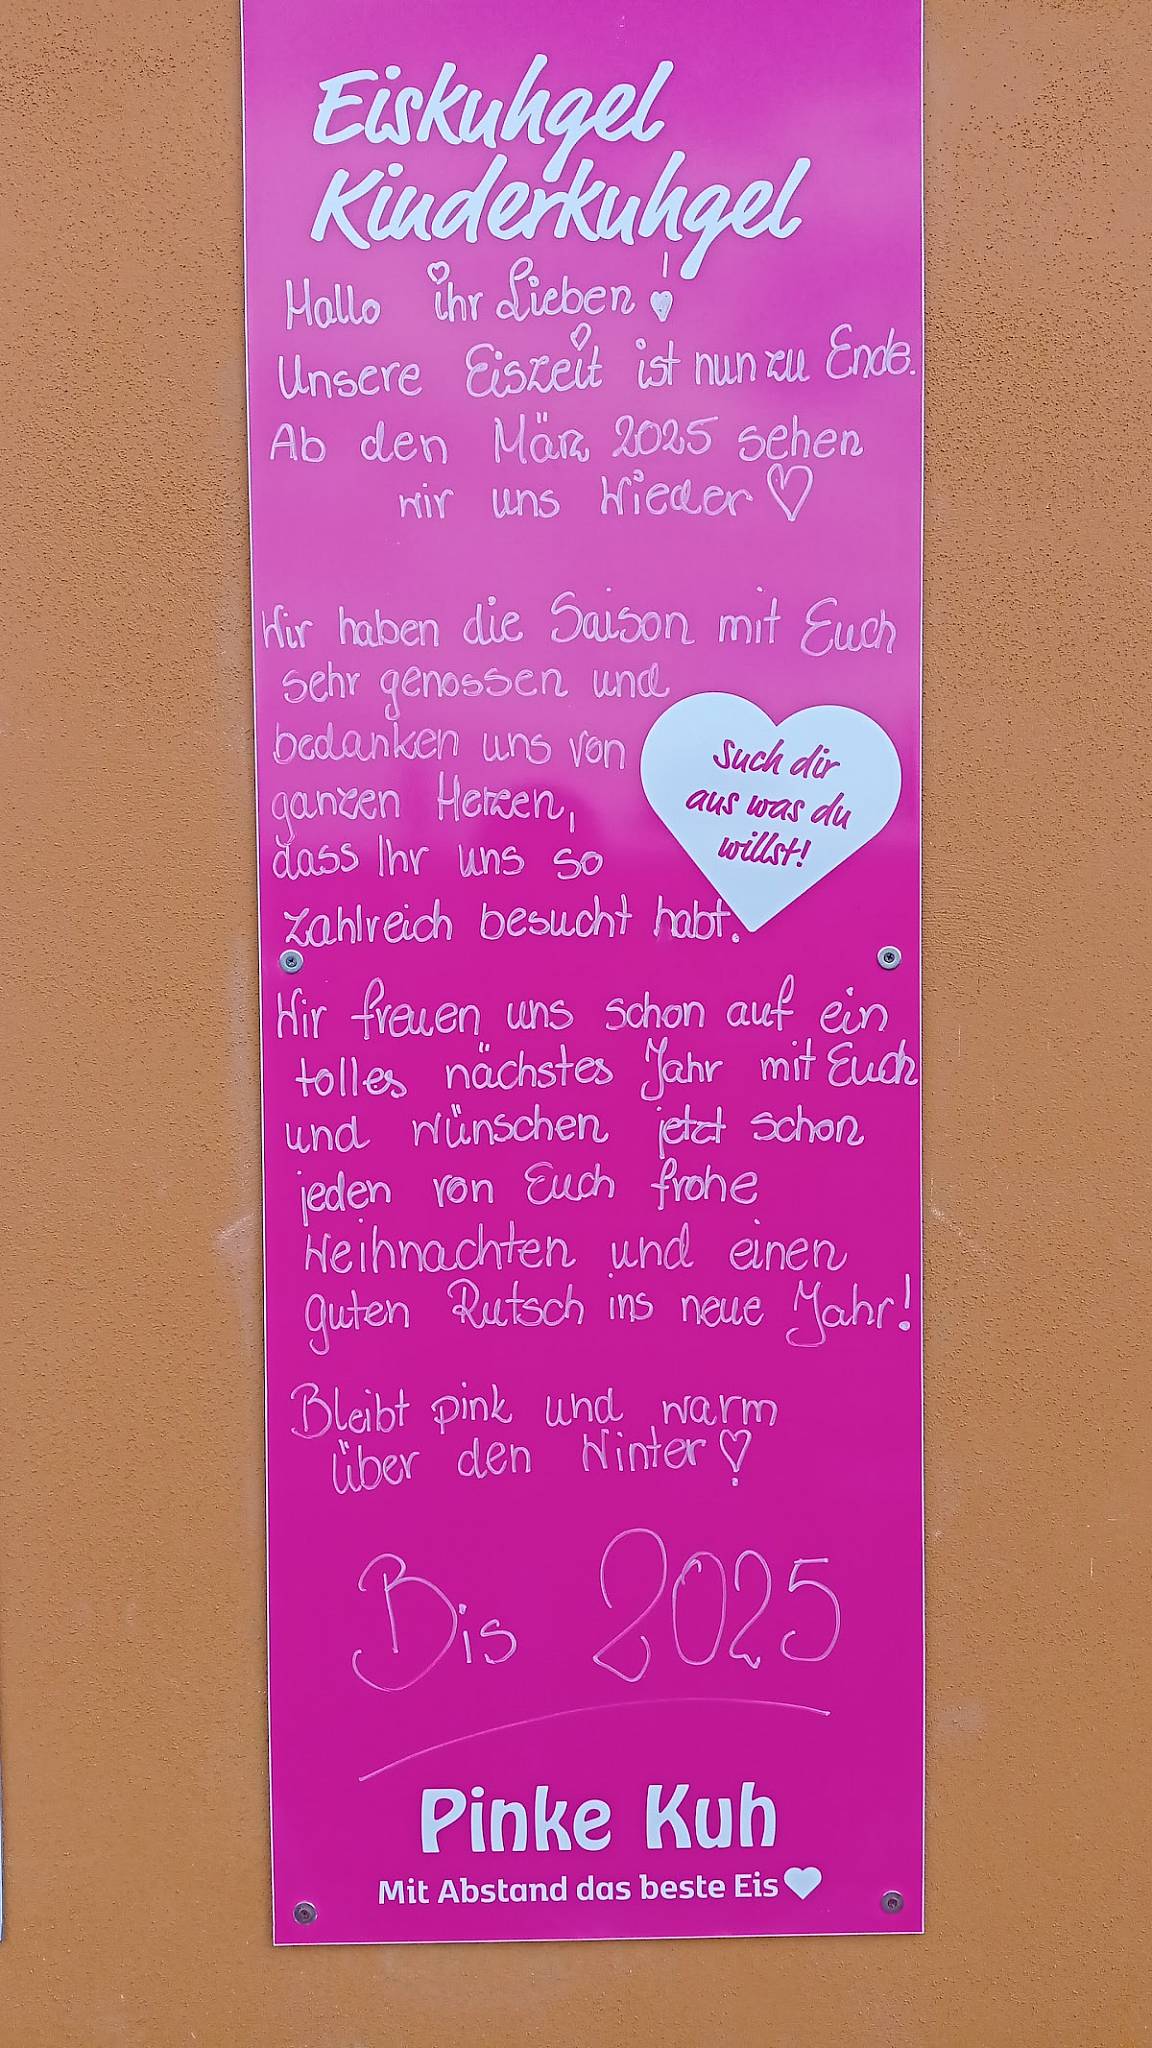 Eiskuhgel
Kinderkuhgel
Hallo ihr Lieben!
Unsere Eiszeit ist nun zu Ende.
Ab den März 2025 sehen
wir uns wieder ♡
Wir haben die Saison mit Euch
sehr genossen und
bedanken uns von
ganzen Herzen,
dass Ihr uns so
zahlreich besucht habt.
Such dir
aus was du
willst!
Wir freuen uns schon auf ein
tolles nächstes Jahr mit Euch
und wünschen jetzt schon
jeden von Euch frohe
Weihnachten und einen
guten Rutsch ins neue Jahr!
Bleibt pink und warm
über den Winter ♡
Bis 2025
Pinke Kuh
Mit Abstand das beste Eis ♥